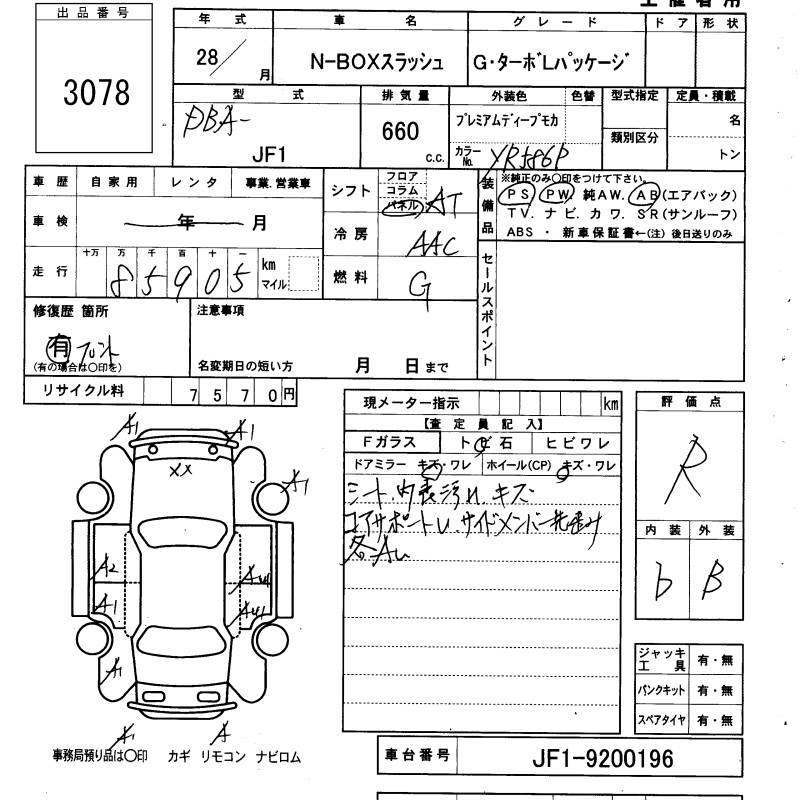 出品番号
3078
年式 車名 グレード ドア 形状
28/月 N-BOXスラッシュ G・ターボLパッケージ
型式 排気量 外装色 色替 型式指定 定員・積載
DBA- 660 c.c. プレミアムディープモカ 名
JF1 カラーNo. YR586P 類別区分 トン
車歴 自家用 レンタ 事業.営業車
シフト フロア コラム パネル AT
装備品 ※純正のみ○印をつけて下さい。
PS PW. 純AW. AB(エアバック)
TV. ナビ. カワ. SR(サンルーフ)
ABS ・ 新車保証書←(注) 後日送りのみ
車検 年 月
冷房 AAC
走行 十万 万 千 百 十 一
85905 km マイル
燃料 G
セールスポイント
修復歴 箇所
有 フロント
(有の場合は○印を)
注意事項
名変期日の短い方 月 日まで
リサイクル料 7570円
現メーター指示 km
【査定員記入】
Fガラス トビ石 ヒビワレ
ドアミラー キズ・ワレ ホイール(CP) キズ・ワレ
シート.内装汚れ.キズ
コアサポートU.サイドメンバー先歪み
各AU
評価点
R
内装 外装
b B
A1 A1
XX
A1
A2
A1
A1
A1 A
ジャッキ工具 有・無
パンクキット 有・無
スペアタイヤ 有・無
事務局預り品は○印 カギ リモコン ナビロム
車台番号 JF1-9200196